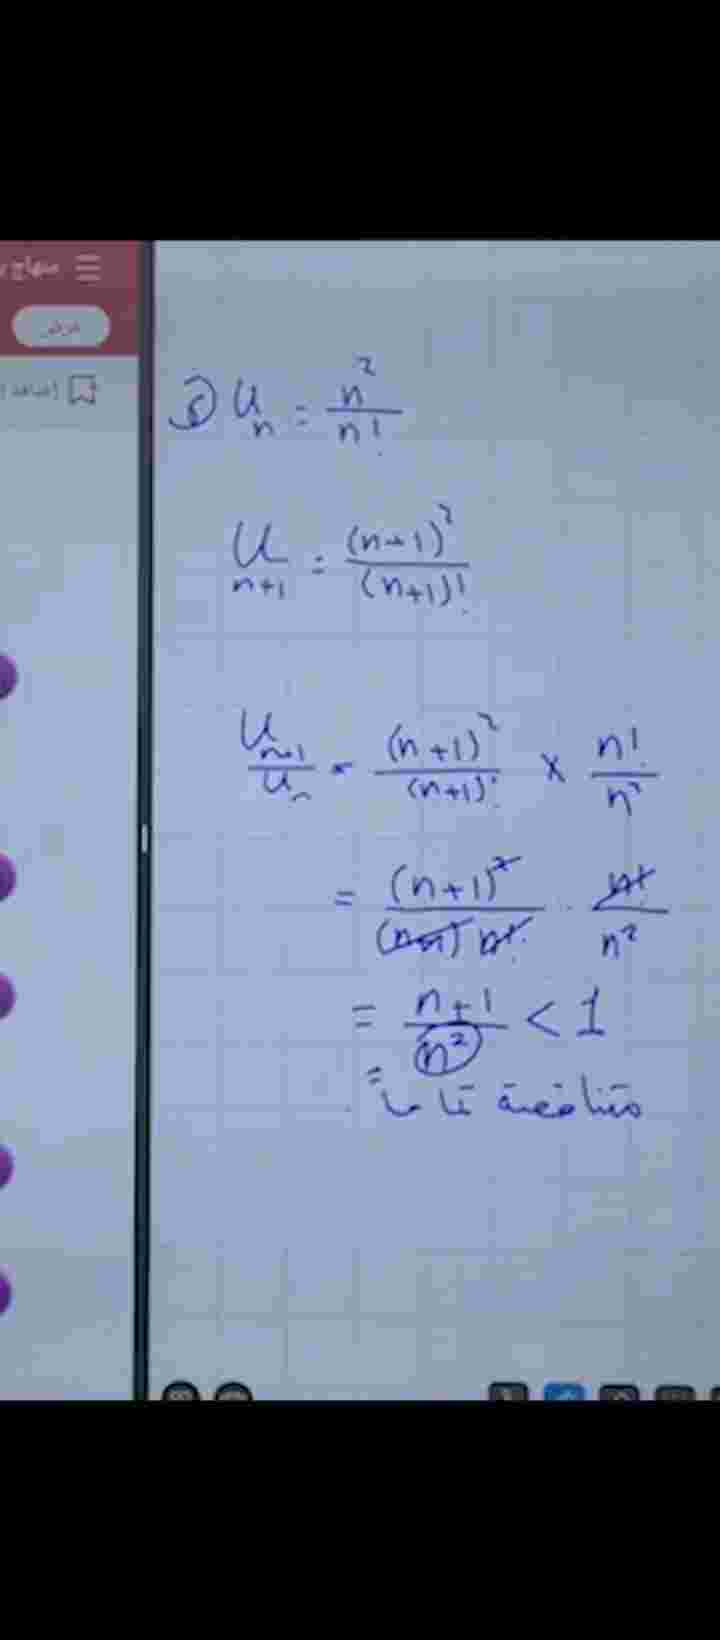 عرض
U_n = n² / n!
U_{n+1} = (n+1)² / (n+1)!
U_{n+1} / U_n = (n+1)² / (n+1)! × n! / n²
= (n+1)² / (n+1) n! · n! / n²
= n+1 / n² < 1
= متناقصة تماما